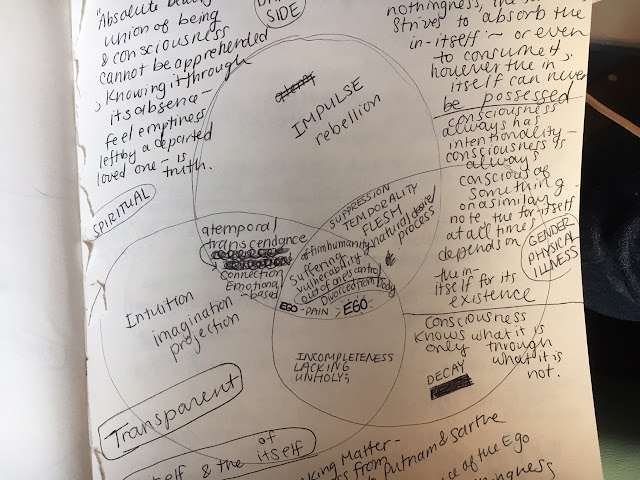 "Absolute
union of being
& consciousness
cannot be apprehended
knowing it through
its absence –
feel emptiness
left by a departed
loved one – is
truth.
SIDE
nothingness, the
Strives to absorb the
in-itself – or even
to consume it
however the in
itself can never
be possessed
consciousness
always has
intentionality –
consciousness is
always
conscious of
something –
on a similar
note, the for itself
at all times
depends on
the in-
itself for its
existence
consciousness
knows what it is
only through
what it is
not.
IMPULSE
rebellion
SPIRITUAL
SUPPRESSION
TEMPORALITY
FLESH
natural/desire/
process
GENDER
PHYSICAL
ILLNESS
atemporal
transcendance
connection
Emotional
-based
affirm humanity
Suffering
vulnerability
(out of ones control)
Divorced from body
EGO – PAIN > EGO
Intuition
imagination
projection
INCOMPLETENESS
LACKING
UNHOLY;
DECAY
Transparent
& the of
itself
Matter –
from
Putnam & Sartre
of the Ego